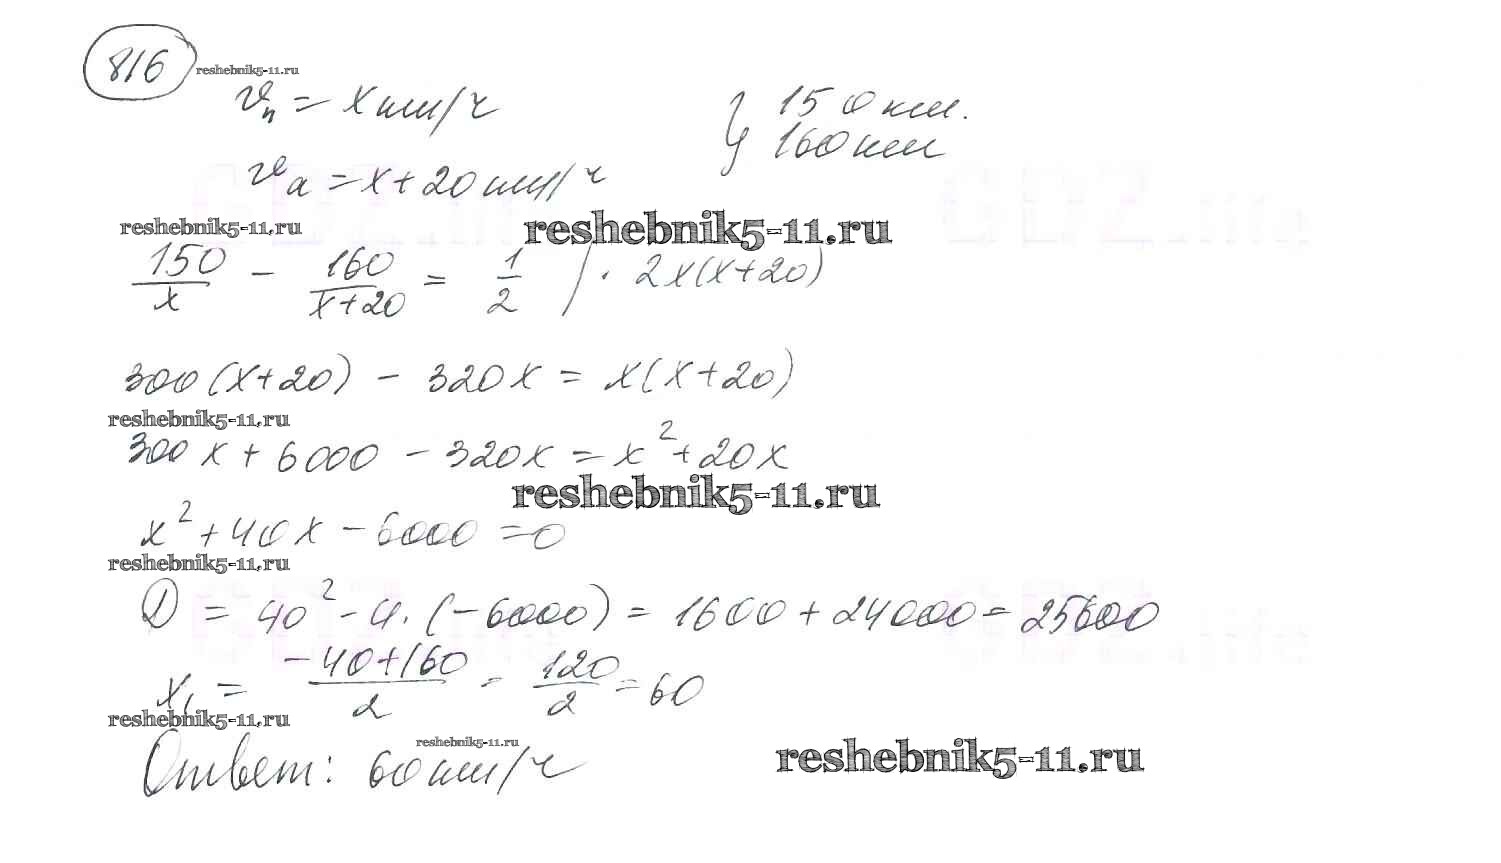 816 reshebnik5-11.ru
vп = x км/ч } 150 км.
160 км
vа = x + 20 км/ч
reshebnik5-11.ru reshebnik5-11.ru
150/x - 160/(x+20) = 1/2 | · 2x(x+20)
300(x+20) - 320x = x(x+20)
reshebnik5-11.ru
300x + 6000 - 320x = x² + 20x
reshebnik5-11.ru
x² + 40x - 6000 = 0
reshebnik5-11.ru
D = 40² - 4·(-6000) = 1600 + 24000 = 25600
x₁ = (-40+160)/2 = 120/2 = 60
reshebnik5-11.ru
reshebnik5-11.ru
Ответ: 60 км/ч reshebnik5-11.ru